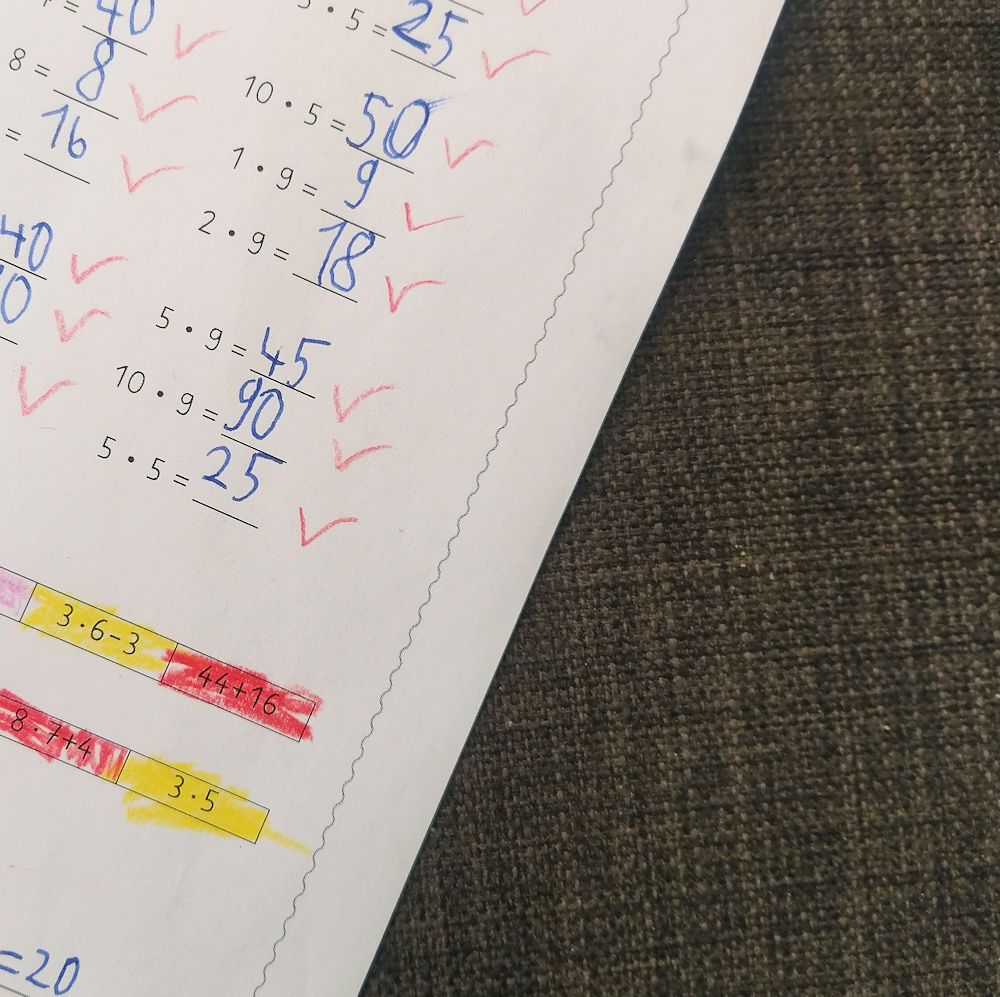 = 40
8 = 8
= 16
40
10
· 5 = 25
10 · 5 = 50
1 · 9 = 9
2 · 9 = 18
5 · 9 = 45
10 · 9 = 90
5 · 5 = 25
3·6-3 44+16
8·7+4 3·5
=20